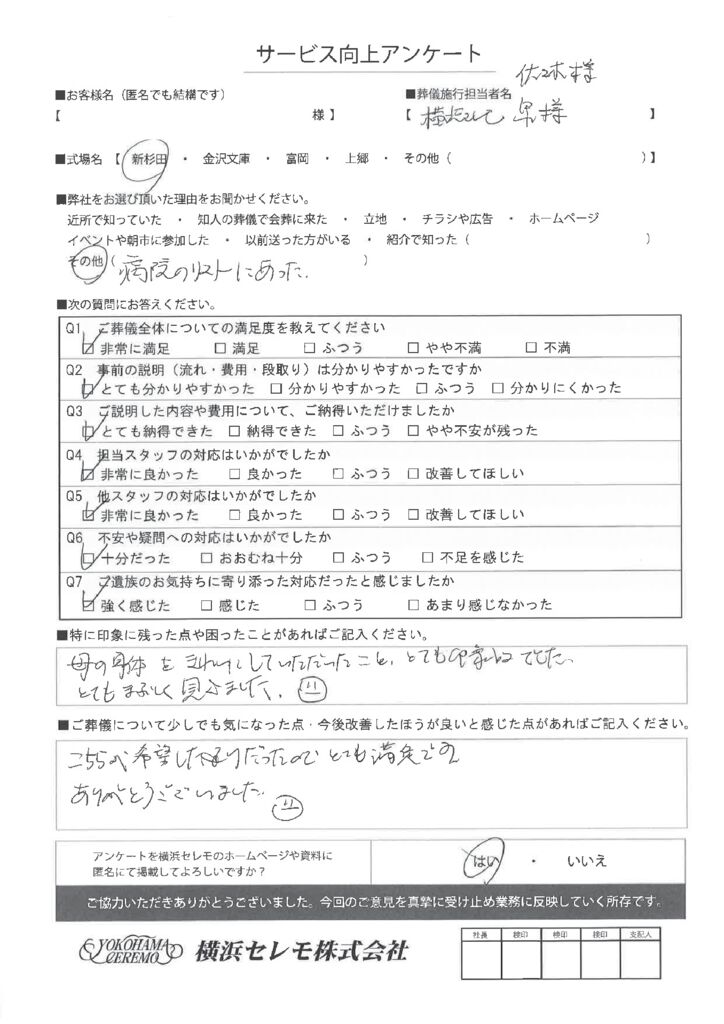 サービス向上アンケート
佐々木様
■お客様名（匿名でも結構です）
■葬儀施行担当者名
【 様】
【 横浜セレモ 様 】
■式場名 【 新杉田 ・ 金沢文庫 ・ 富岡 ・ 上郷 ・ その他（ ）】
■弊社をお選び頂いた理由をお聞かせください。
近所で知っていた ・ 知人の葬儀で会葬に来た ・ 立地 ・ チラシや広告 ・ ホームページ
イベントや朝市に参加した ・ 以前送った方がいる ・ 紹介で知った（ ）
その他（病院のリストにあった. ）
■次の質問にお答えください。
Q1 ご葬儀全体についての満足度を教えてください
☑ 非常に満足 □ 満足 □ ふつう □ やや不満 □ 不満
Q2 事前の説明（流れ・費用・段取り）は分かりやすかったですか
☑ とても分かりやすかった □ 分かりやすかった □ ふつう □ 分かりにくかった
Q3 ご説明した内容や費用について、ご納得いただけましたか
☑ とても納得できた □ 納得できた □ ふつう □ やや不安が残った
Q4 担当スタッフの対応はいかがでしたか
☑ 非常に良かった □ 良かった □ ふつう □ 改善してほしい
Q5 他スタッフの対応はいかがでしたか
☑ 非常に良かった □ 良かった □ ふつう □ 改善してほしい
Q6 不安や疑問への対応はいかがでしたか
☑ 十分だった □ おおむね十分 □ ふつう □ 不足を感じた
Q7 ご遺族のお気持ちに寄り添った対応だったと感じましたか
☑ 強く感じた □ 感じた □ ふつう □ あまり感じなかった
■特に印象に残った点や困ったことがあればご記入ください。
母の身体を していただいたこと、とても
とても 見えました、
■ご葬儀について少しでも気になった点・今後改善したほうが良いと感じた点があればご記入ください。
こちらが希望した通りだったのでとても満足です
ありがとうございました.
アンケートを横浜セレモのホームページや資料に
匿名にて掲載してよろしいですか？
はい ・ いいえ
ご協力いただきありがとうございました。今回のご意見を真摯に受け止め業務に反映していく所存です。
YOKOHAMA
CEREMO
横浜セレモ株式会社
社長 検印 検印 検印 支配人